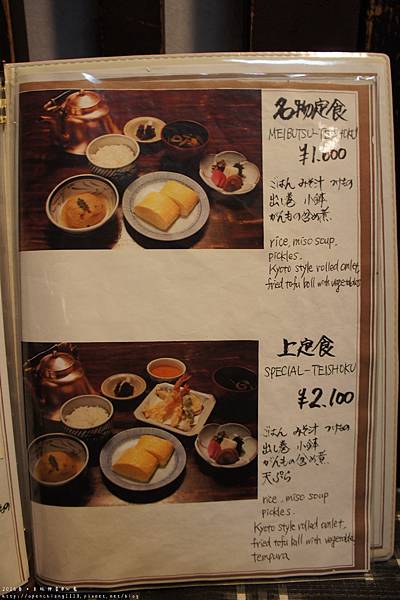 名物定食
MEIBUTSU-TEISHOKU
¥1.600
ごはん みそ汁 つけもの
出し巻 小鉢
がんもの含め煮
rice, miso soup,
pickles.
Kyoto style rolled omlet,
fried tofu ball with vegetables
上定食
SPECIAL-TEISHOKU
¥2.100
ごはん みそ汁 つけもの
出し巻 小鉢
がんもの含め煮
天ぷら
rice, miso soup
pickles.
Kyoto style rolled omlet,
fried tofu ball with vegetable
tempura
http://openchiang1119.pixnet.net/blog